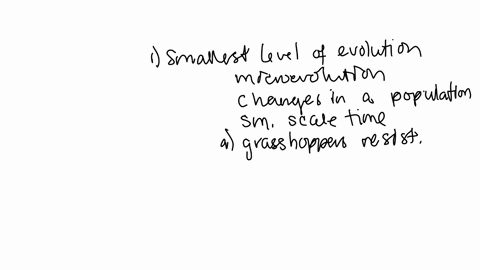 1) Smallest level of evolution
microevolution
changes in a population
sm. scale time
a) grasshoppers resist.